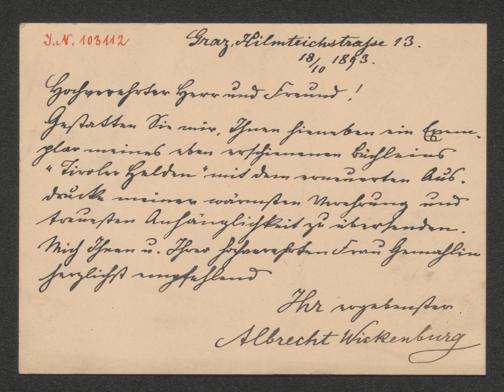 I.N. 103112
Graz, Hilmteichstraße 13.
18/10 1893.
Hochverehrter Herr und Freund!
Gestatten Sie mir, Ihnen hieneben ein Exem-
plar meines eben erschienenen Büchleins
"Tiroler Helden" mit dem erneuerten Aus-
drucke meiner wärmsten Verehrung und
treuesten Anhänglichkeit zu übersenden.
Mich Ihnen u. Ihrer hochverehrten Frau Gemahlin
herzlichst empfehlend
Ihr ergebenster
Albrecht Wickenburg